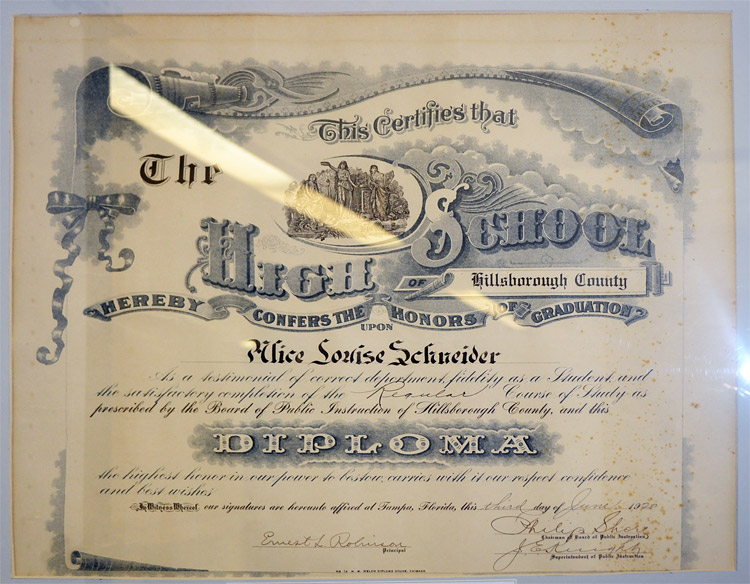 This Certifies that
The
HIGH SCHOOL
OF Hillsborough County
HEREBY CONFERS THE HONORS OF GRADUATION
UPON
Alice Louise Schneider
As a testimonial of correct deportment, fidelity as a Student, and
the satisfactory completion of the Regular Course of Study as
prescribed by the Board of Public Instruction of Hillsborough County, and this
DIPLOMA
the highest honor in our power to bestow, carries with it our respect confidence
and best wishes
In Witness Whereof, our signatures are hereunto affixed at Tampa, Florida, this third day of June 1920
Philip Shore
Chairman of Board of Public Instruction
Ernest L Robinson
Principal
Superintendent of Public Instruction